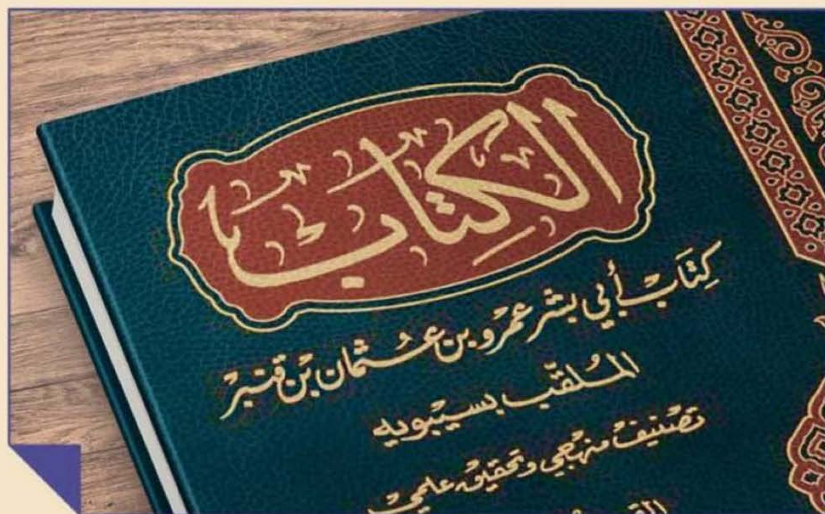 الكتاب
كتاب أبي بشر عمرو بن عثمان بن قنبر
الملقب بسيبويه
تصنيف منهجي وتحقيق علمي